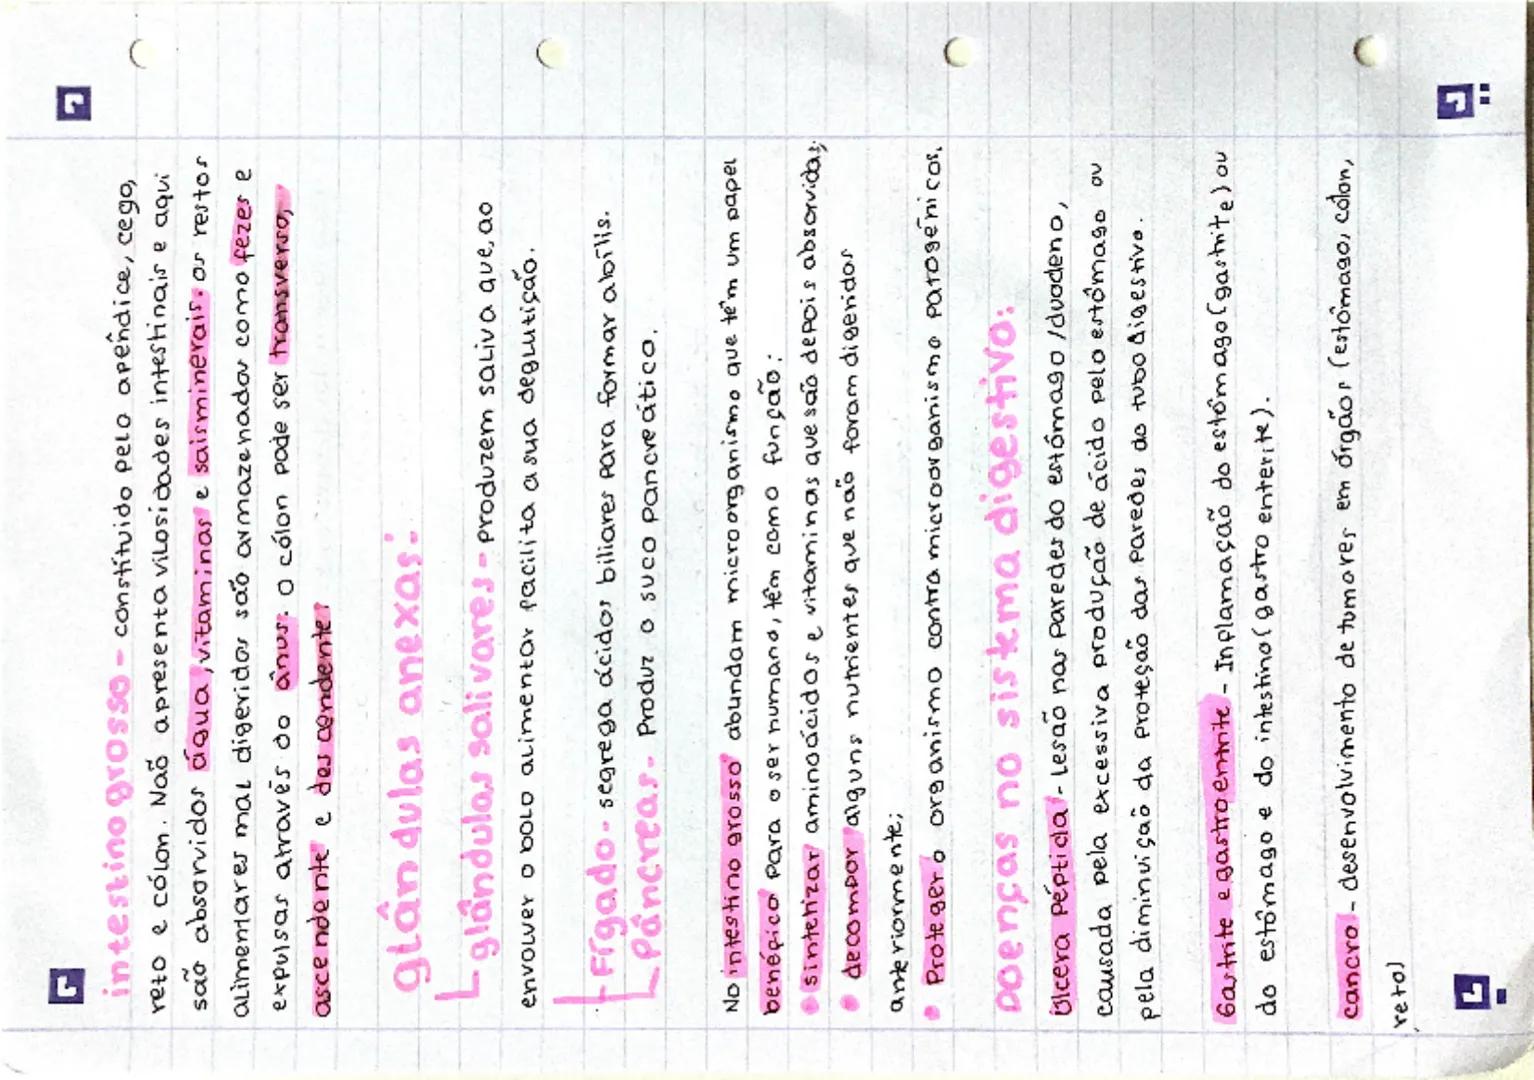 intestino grosso - constítuído pelo apêndice, cego,
reto e cólon. Não apresenta vilosidades intestinais e aqui
são absorvidos água, vitaminas e saisminerais. os restos
alimentares mal digeridos são armazenados como fezes e
expulsas através do ânus. o cólon pode ser transverso,
ascendente e descendente.
glândulas anexas:
glândulas salivares - produzem saliva que, ao
envolver o bolo alimentar facilita a sua deglutição.
Fígado - segrega ácidos biliares para formar abílis.
Pâncreas - Produz o suco pancreático.
No intestino grosso abundam microorganismo que têm um papel
benéfico para o ser humano, têm como função:
• sintetizar aminoácidos e vitaminas que são depois absorvidas;
• decompor alguns nutrientes que não foram digeridos
anteriormente;
• Proteger o organismo contra microorganismo patogénicos.
Doenças no sistema digestivo:
Úlcera Péptida - Lesão nas paredes do estômago /duodeno,
causada pela excessiva produção de ácido pelo estômago ou
pela diminuição da proteção das paredes do tubo digestivo.
Gastrite e gastroentrite - Inflamação do estômago (gastrite) ou
do estômago e do intestino (gastro enterite).
cancro - desenvolvimento de tumores em órgãos (estômago, cólon,
reto)